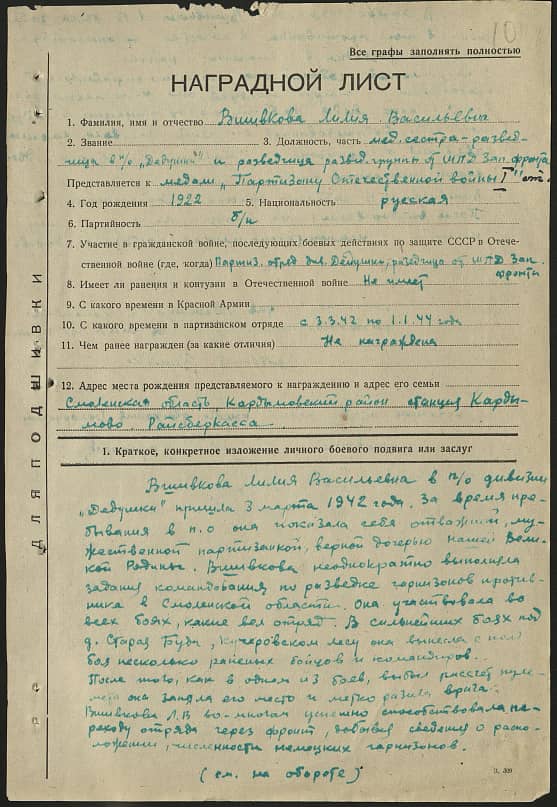 10
Все графы заполнять полностью
НАГРАДНОЙ ЛИСТ
1. Фамилия, имя и отчество Вшивкова Лилия Васильевы
2. Звание 3. Должность, часть мед. сестра-развед-
чица в п/о „Дедушка" и разведчица развед. группы от ШПД Зап. фронта
Представляется к медали „Партизану Отечественной войны I" ст.
4. Год рождения 1922 5. Национальность русская
6. Партийность б/п
7. Участие в гражданской войне, последующих боевых действиях по защите СССР в Отече-
ственной войне (где, когда) Партиз. отряд див. Дедушка, разведчица от ШПД Зап.
фронта
8. Имеет ли ранения и контузии в Отечественной войне Не имеет
9. С какого времени в Красной Армии
10. С какого времени в партизанском отряде с 3.3.42 по 1.1.44 года
11. Чем ранее награжден (за какие отличия) Не награждена
12. Адрес места рождения представляемого к награждению и адрес его семьи
Смоленская область, Кардымовский район станция Карды-
мово Райсберкасса
1. Краткое, конкретное изложение личного боевого подвига или заслуг
Вшивкова Лилия Васильевна в п/о дивизии
„Дедушки" пришла 3 марта 1942 года. За время пре-
бывания в п.о она показала себя отважной, му-
жественной партизанкой, верной дочерью нашей Вели-
кой Родины. Вшивкова неоднократно выполняла
задания командования по разведке гарнизонов против-
ника в Смоленской области. Она участвовала во
всех боях, какие вел отряд. В сильнейших боях под
д. Старая Буда, Кучеровском лесу она вынесла с поля
боя несколько раненых бойцов и командиров.
После того, как в одном из боев, выбыл расчет пуле-
мета она заняла его место и метко разила врага.
Вшивкова Л.В во-многом успешно способствовала пе-
реходу отряда через фронт, добывая сведения о распо-
ложении, численности немецких гарнизонов.
(см. на обороте)
З. 309
ДЛЯ ПОДШИВКИ